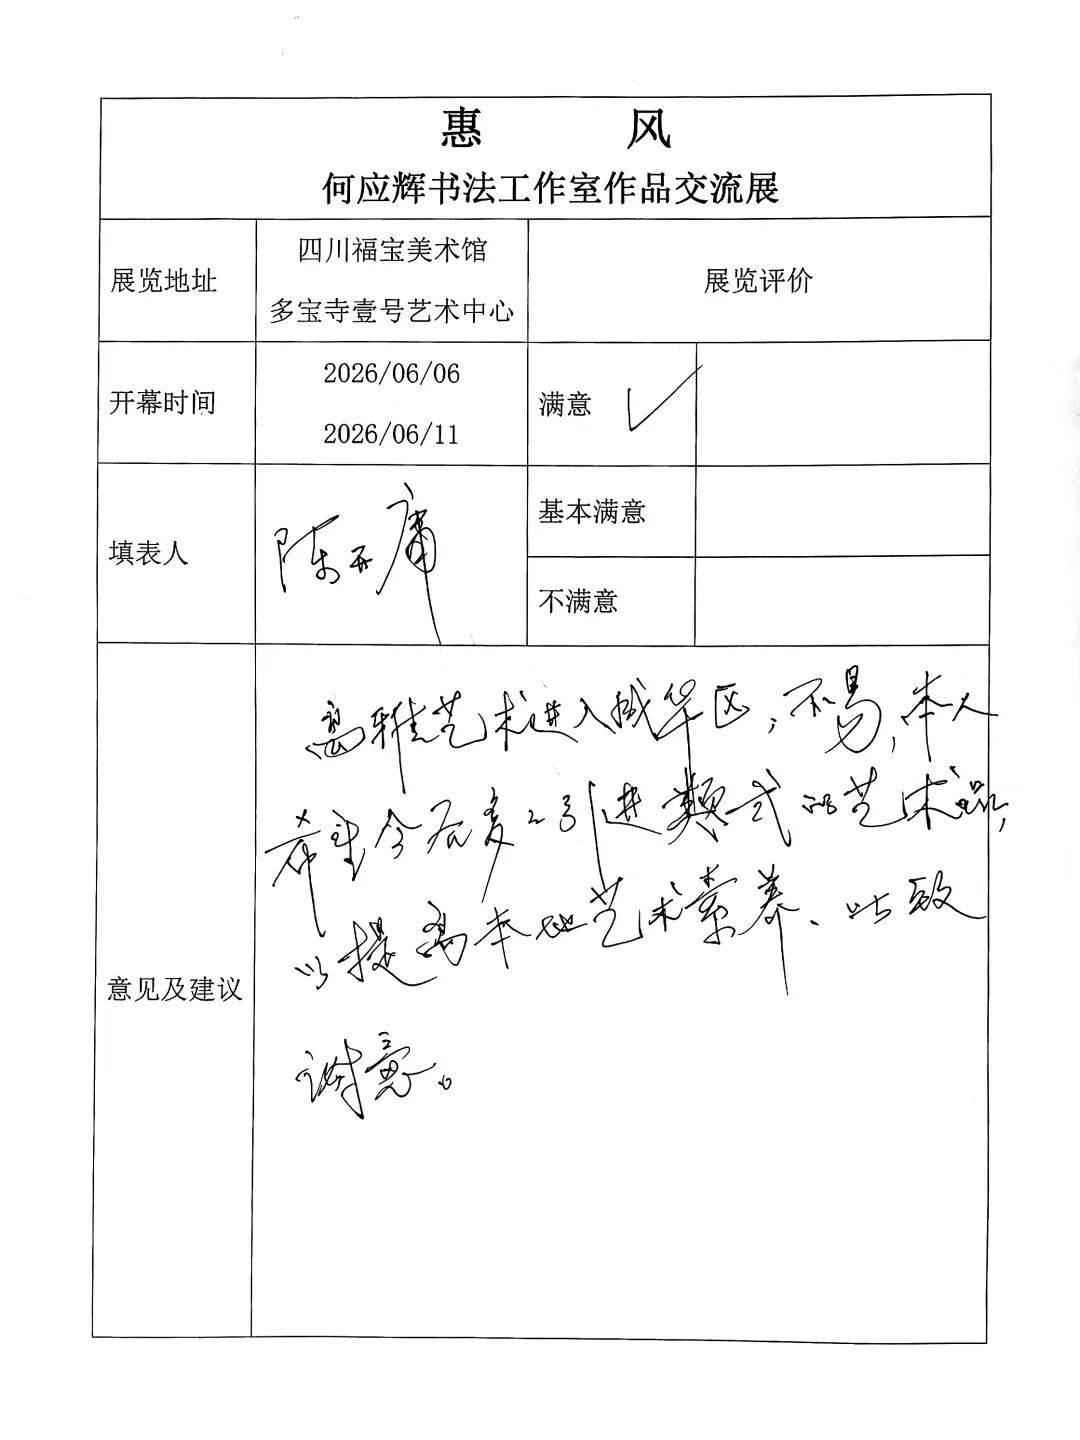 惠 风
何应辉书法工作室作品交流展
展览地址
四川福宝美术馆
多宝寺壹号艺术中心
展览评价
开幕时间
2026/06/06
2026/06/11
满意 ✓
填表人
陈开庸
基本满意
不满意
意见及建议
高雅艺术进入成华区,不易,本人
希望今后多多引进类式的艺术品,
以提高本地艺术素养、以致
谢意。